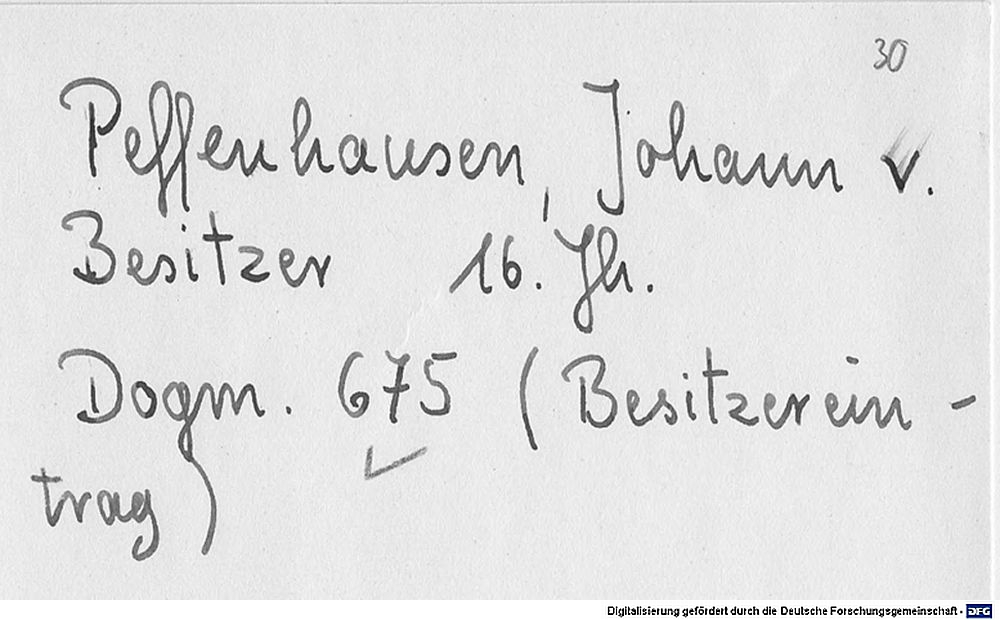 30
Peffenhausen, Johann v.
Besitzer 16. Jh.
Dogm. 675 (Besitzerein-
trag)
Digitalisierung gefördert durch die Deutsche Forschungsgemeinschaft - DFG